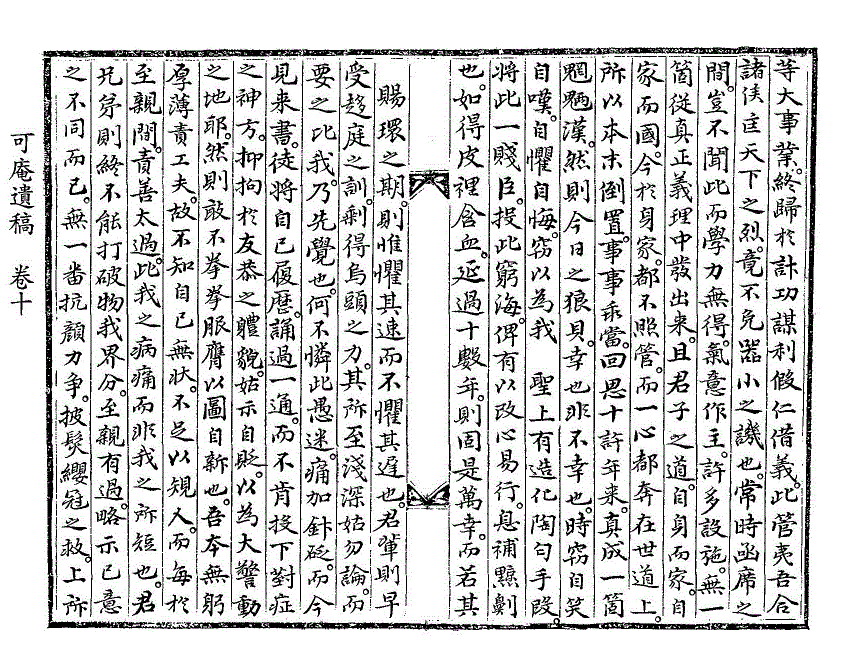 等大事業。終歸於計功謀利假仁借義。此管夷吾合
諸侯匡天下之烈。竟不免器小之譏也。常時函席之
間。豈不聞此而學力無得。氣意作主。許多設施。無一
箇從真正義理中發出来。且君子之道。自身而家。自
家而國。今於身家。都不照管。而一心都奔在世道上。
所以本末倒置。事事乖當。回思十許年来。真成一箇
魍魎漢。然則今日之狼貝。幸也非不幸也。時竊自笑
自嘆。自懼自悔。竊以為我 聖上有造化陶勻手段。
將此一賤臣。投此窮海。俾有以改心易行。息補黥劓
也。如得皮裡含血。延過十數年。則固是萬幸。而若其
賜環之期。則惟懼其速而不懼其遲也。君輩則早
受趍庭之訓。剩得烏頭之力。其所至淺深姑勿論。而
要之比我。乃先覺也。何不憐此愚迷。痛加鉥砭。而今
見来書。徒將自己履歷。誦過一通。而不肯投下對症
之神方。抑拘於友恭之軆貌。姑示自貶。以為大警動
之地耶。然則敢不拳拳服膺以圖自新也。吾夲無躬
厚薄責工夫。故不知自己無狀。不足以規人。而每於
至親間。責善太過。此我之病痛而非我之所短也。君
兄弟則終不能打破物我界分。至親有過。略示已意
之不同而已。無一番抗顔力争。披髮纓冠之救。上所
可庵遺稿 卷十